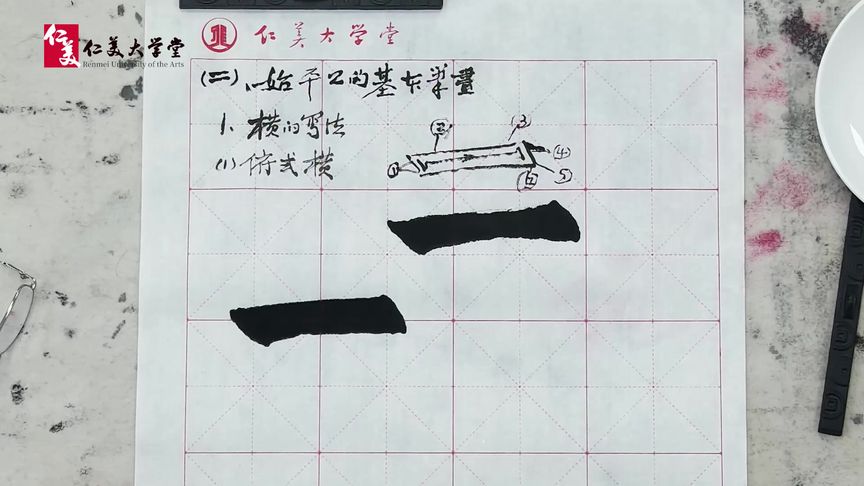 仁美大学堂
仁美大学堂
Renmei University of the Arts
仁美大学堂
(二)、始平公的基本笔画
1、横的写法
(1)俯式横
① ② ③ ④ ⑤ ⑥